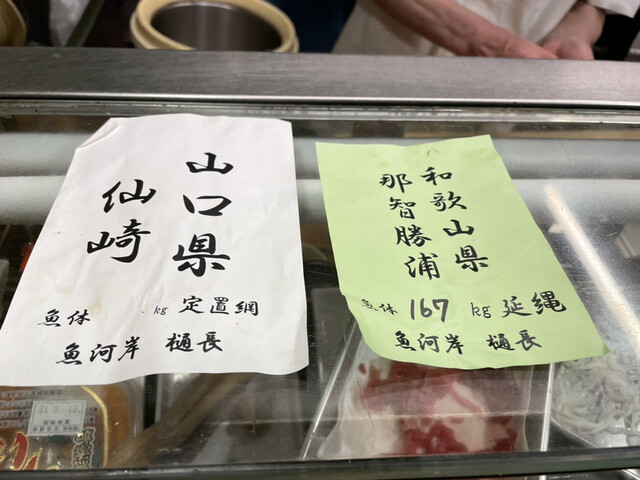 山口県
仙崎
魚体 kg 定置網
魚河岸 樋長
和歌山県
那智勝浦
魚体 167 kg 延縄
魚河岸 樋長